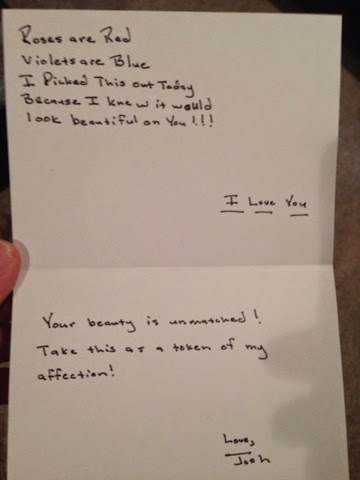 Roses are Red
Violets are Blue
I Picked This out Today
Because I knew it would
look beautiful on You!!!
I Love You
Your beauty is unmatched!
Take this as a token of my
affection!
Love,
Josh